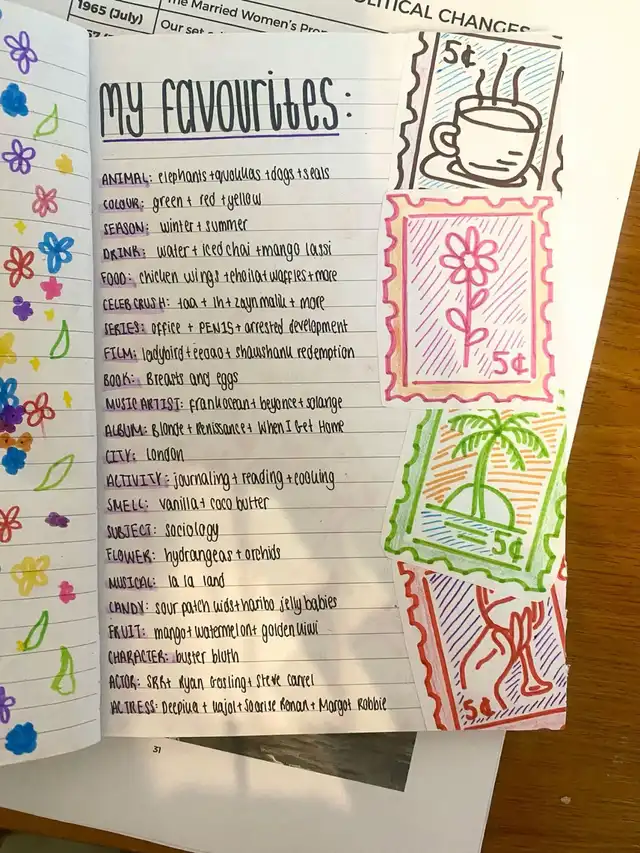 1965 (July)
The Married Women's Pro
Our set
LITICAL CHANGES
My Favourites:
ANIMAL: elephants + quokkas + dogs + seals
COLOUR: green + red + yellow
SEASON: winter + summer
DRINK: water + iced chai + mango lassi
FOOD: chicken wings + choila + waffles + more
CELEB CRUSH: + 1h + zayn malik + more
SERIES: office + PEN15 + arrested development
FILM: ladybird + eeaao + shawshank redemption
BOOK: Breasts and eggs
MUSIC ARTIST: frank ocean + beyonce + solange
ALBUM: Blonde + Renissance + When I Get Home
CITY: London
ACTIVITY: journaling + reading + cooking
SMELL: vanilla + coco butter
SUBJECT: sociology
FLOWER: hydrangeas + orchids
MUSICAL: la la land
CANDY: sour patch kids + haribo jelly babies
FRUIT: mango + watermelon + golden kiwi
CHARACTER: buster bluth
ACTOR: SRK + Ryan Gosling + Steve Carrel
ACTRESS: Deepika + Kajol + Soarise Ronan + Margot Robbie
5¢
5¢
5¢
5¢
31